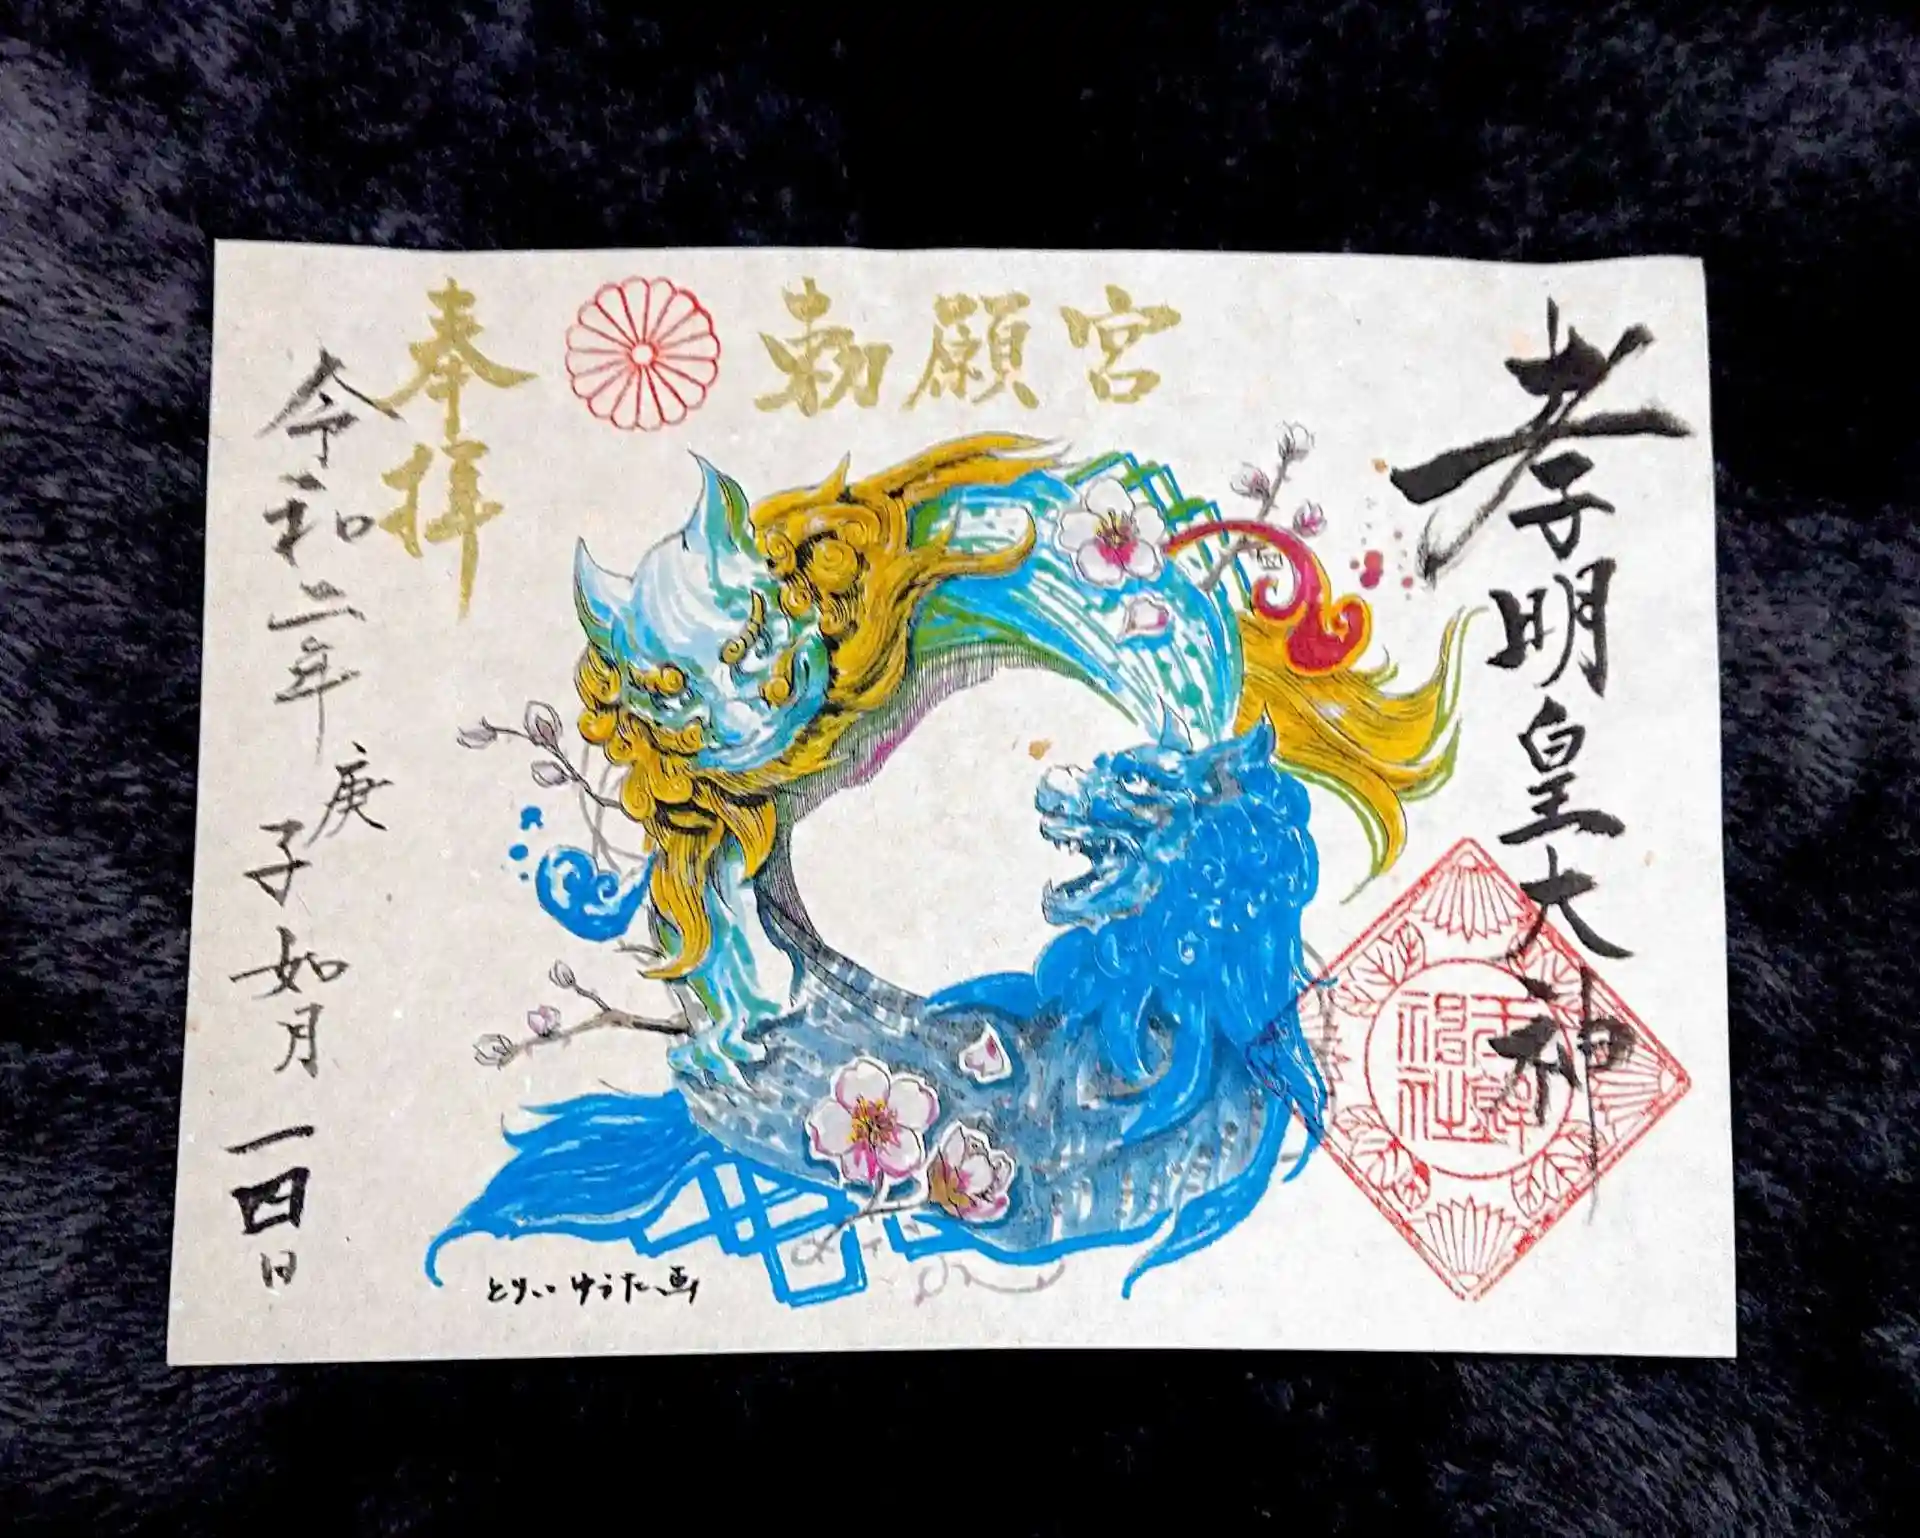 孝明皇大神
勅願宮
奉拝
令和二年
庚子如月
一四日
とりいゆうた画